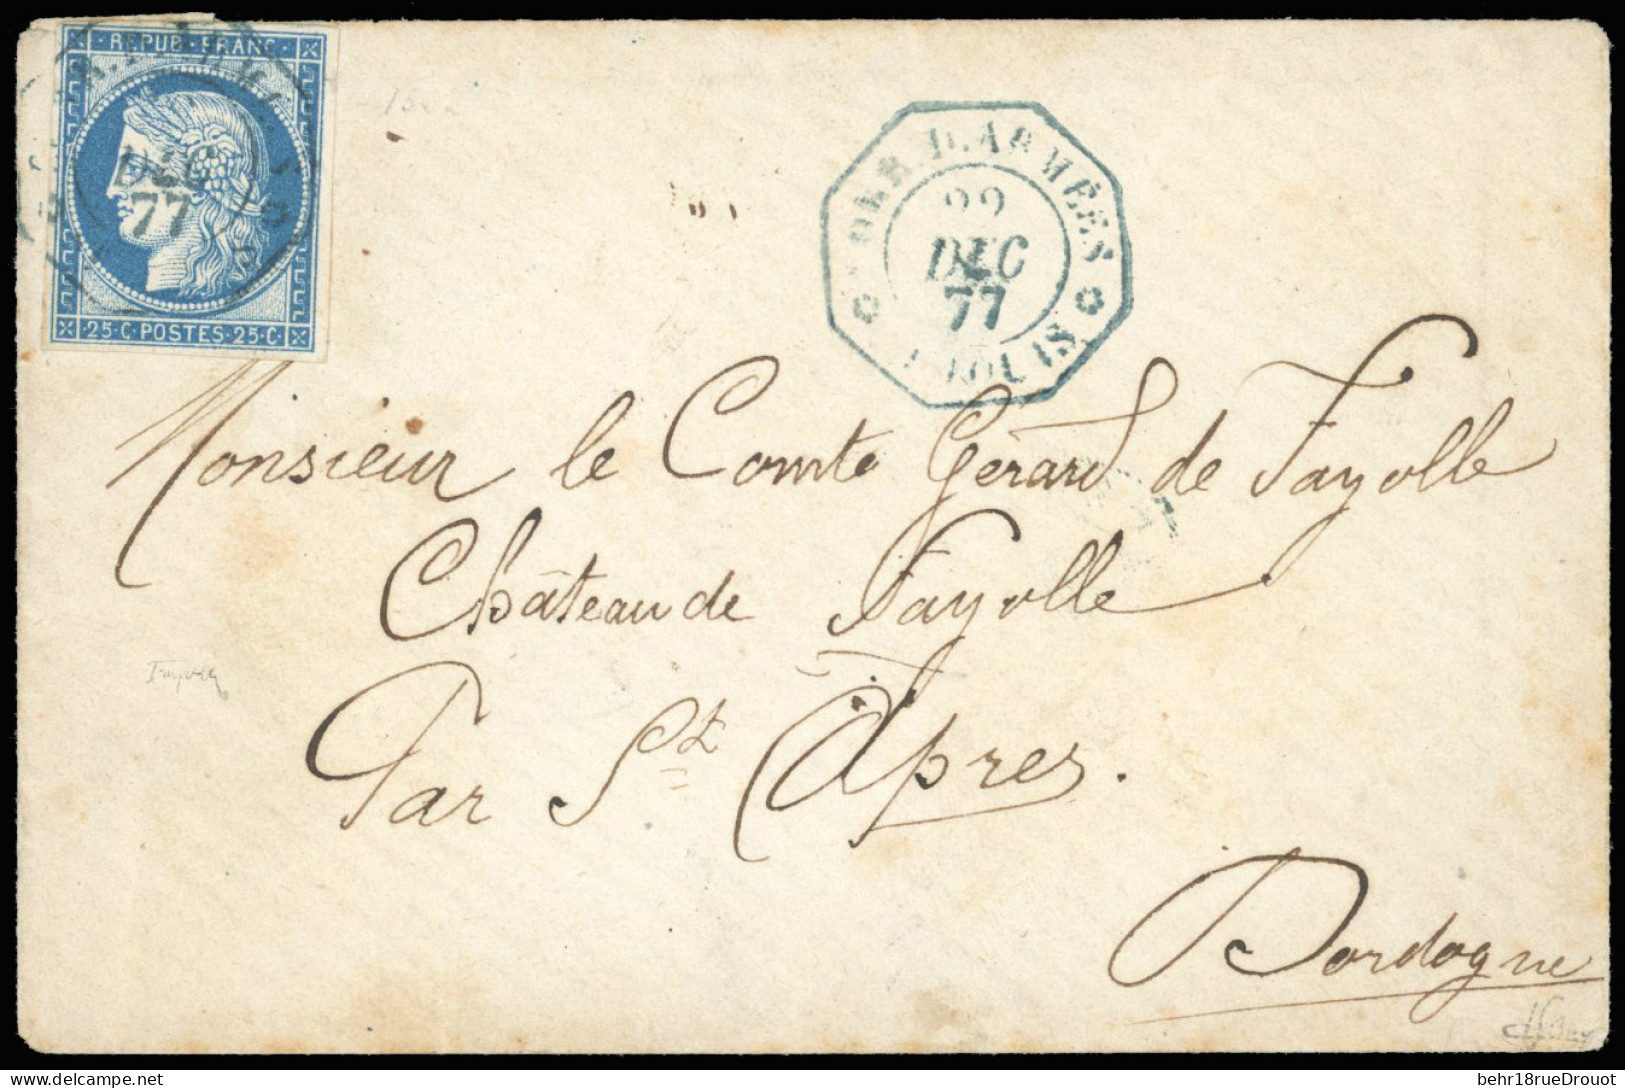 REPUB·FRANC·
DEC
77
·25·C·POSTES·25·C·
COR. D. ARMÉES
22
DEC
77
Monsieur le Comte Gérard de Fayolle
Château de Fayolle
Par St Apres.
Dordogne
behr18rueDrouot